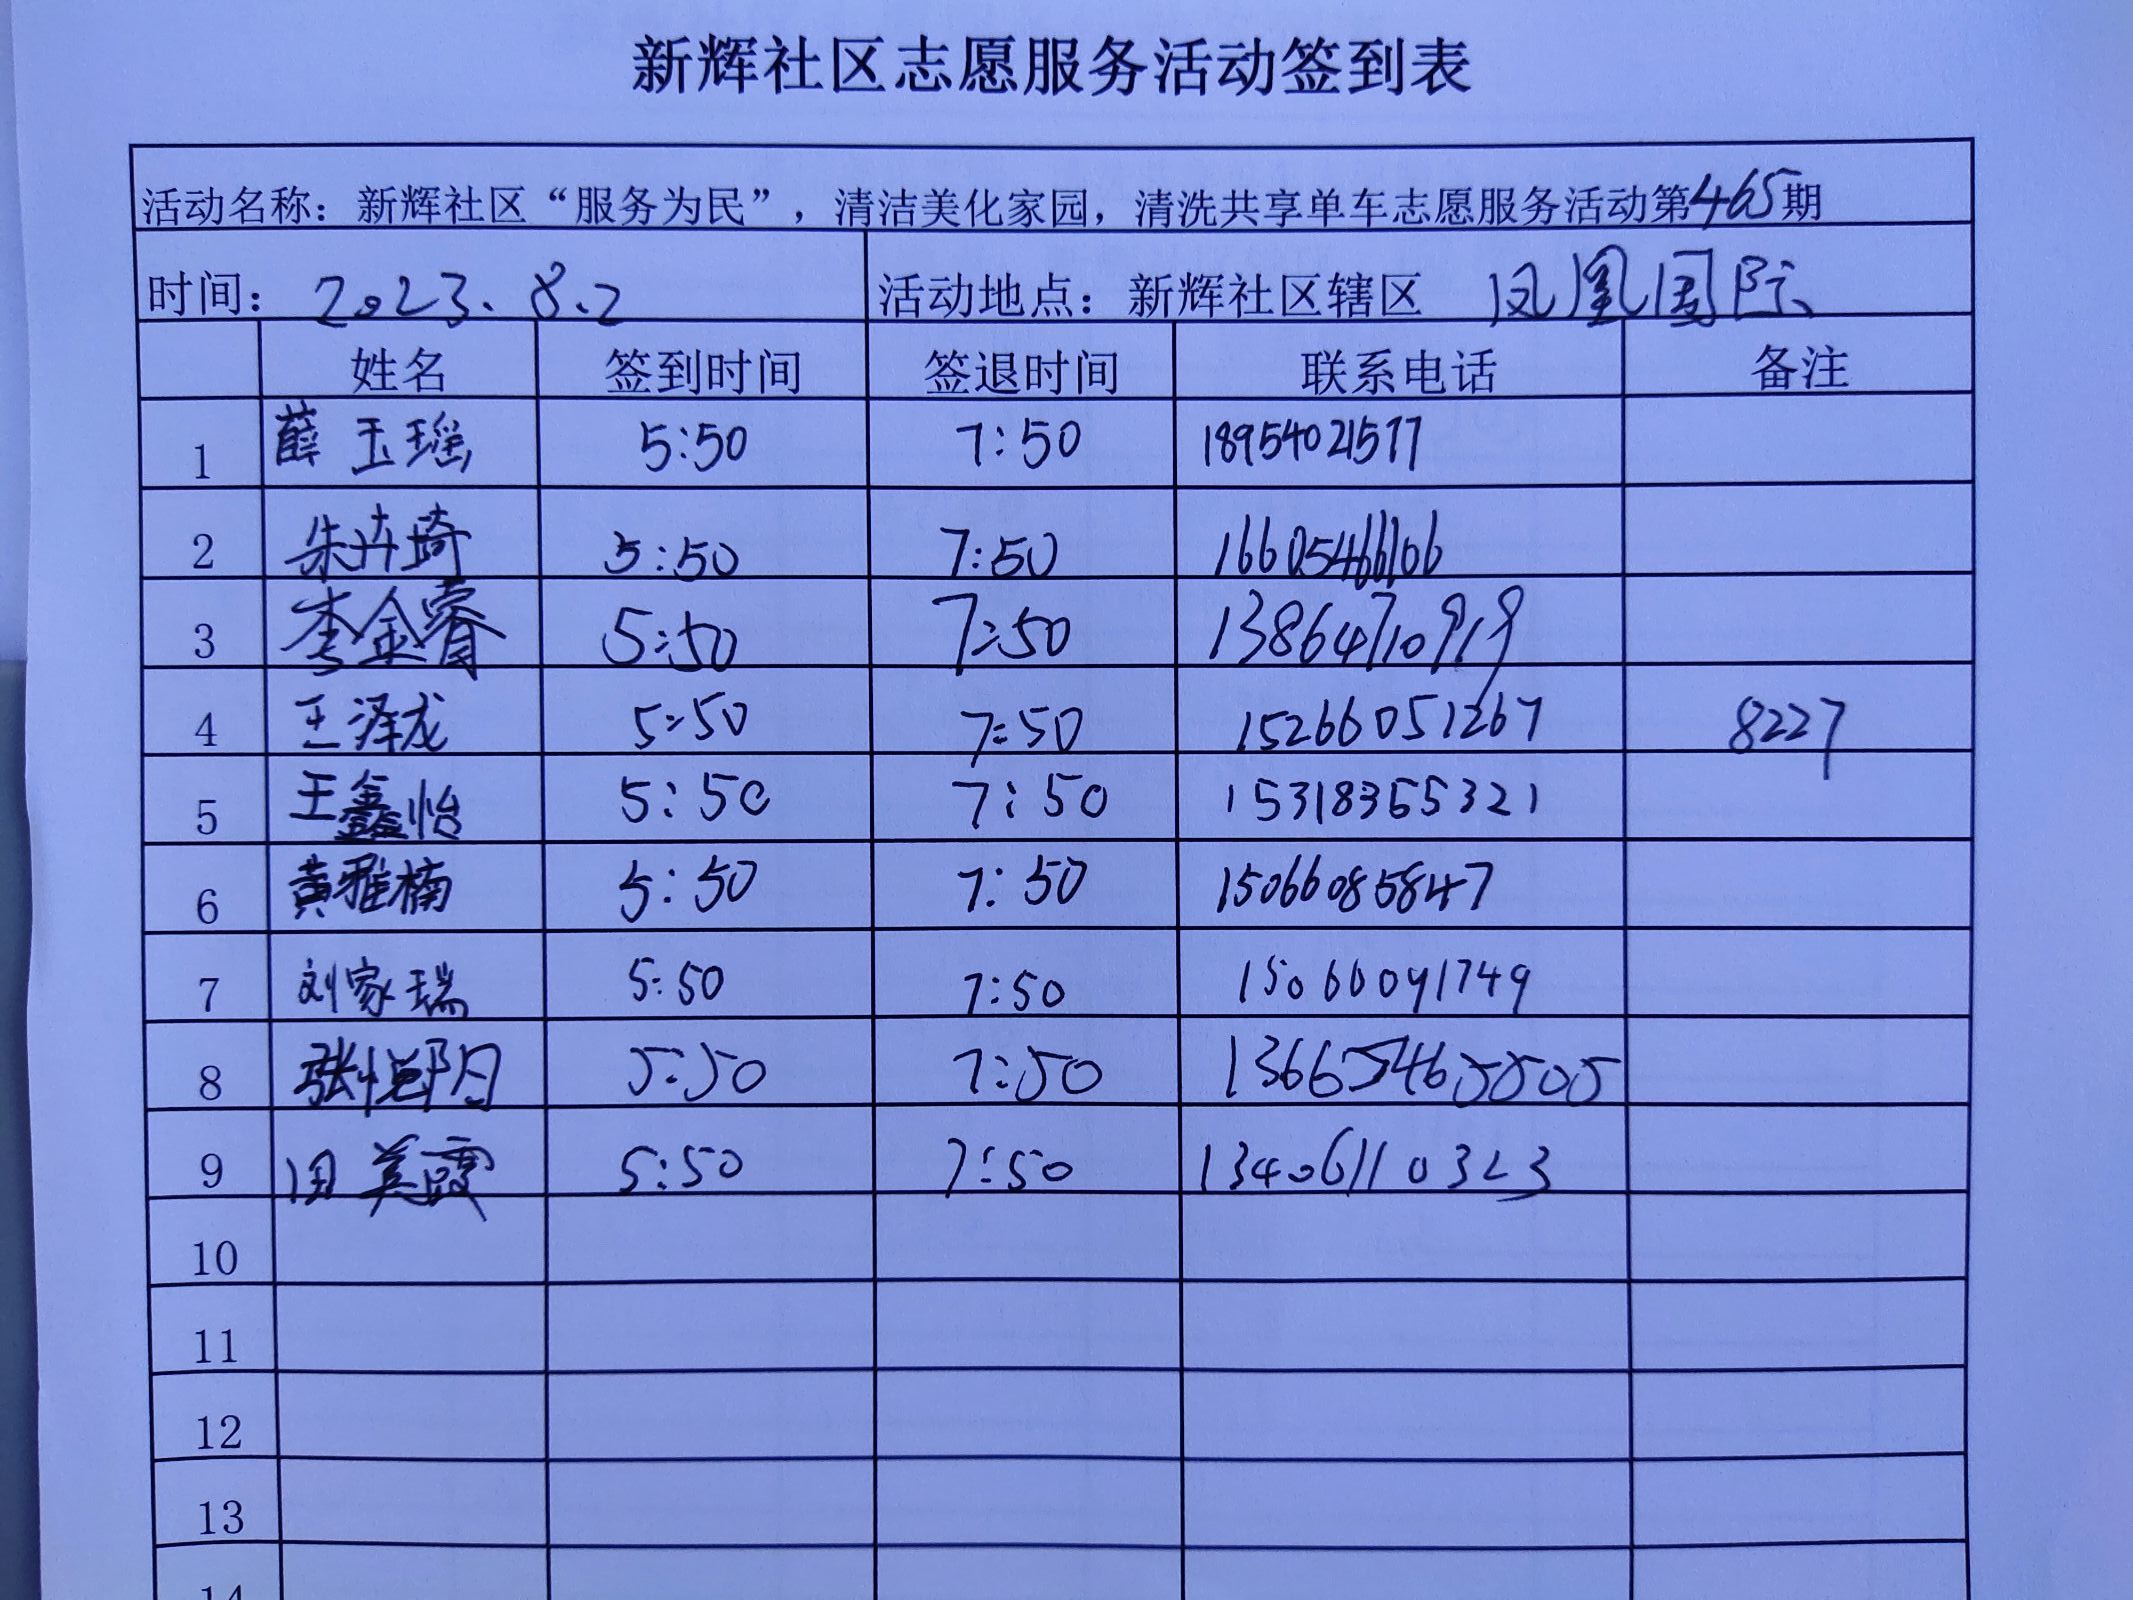 新辉社区志愿服务活动签到表
活动名称：新辉社区“服务为民”，清洁美化家园，清洗共享单车志愿服务活动第465期
时间： 2023.8.2 活动地点：新辉社区辖区 凤凰国际
姓名 签到时间 签退时间 联系电话 备注
1 薛玉瑶 5:50 7:50 18954021577
2 朱卉琦 5:50 7:50 16605466106
3 李金睿 5:50 7:50 13864710919
4 王泽龙 5:50 7:50 15266051267 8227
5 王鑫怡 5:50 7:50 15318355321
6 黄雅楠 5:50 7:50 15066085847
7 刘家瑞 5:50 7:50 15066091749
8 张悦阳 5:50 7:50 13665465505
9 田美霞 5:50 7:50 13406110323
10
11
12
13
14